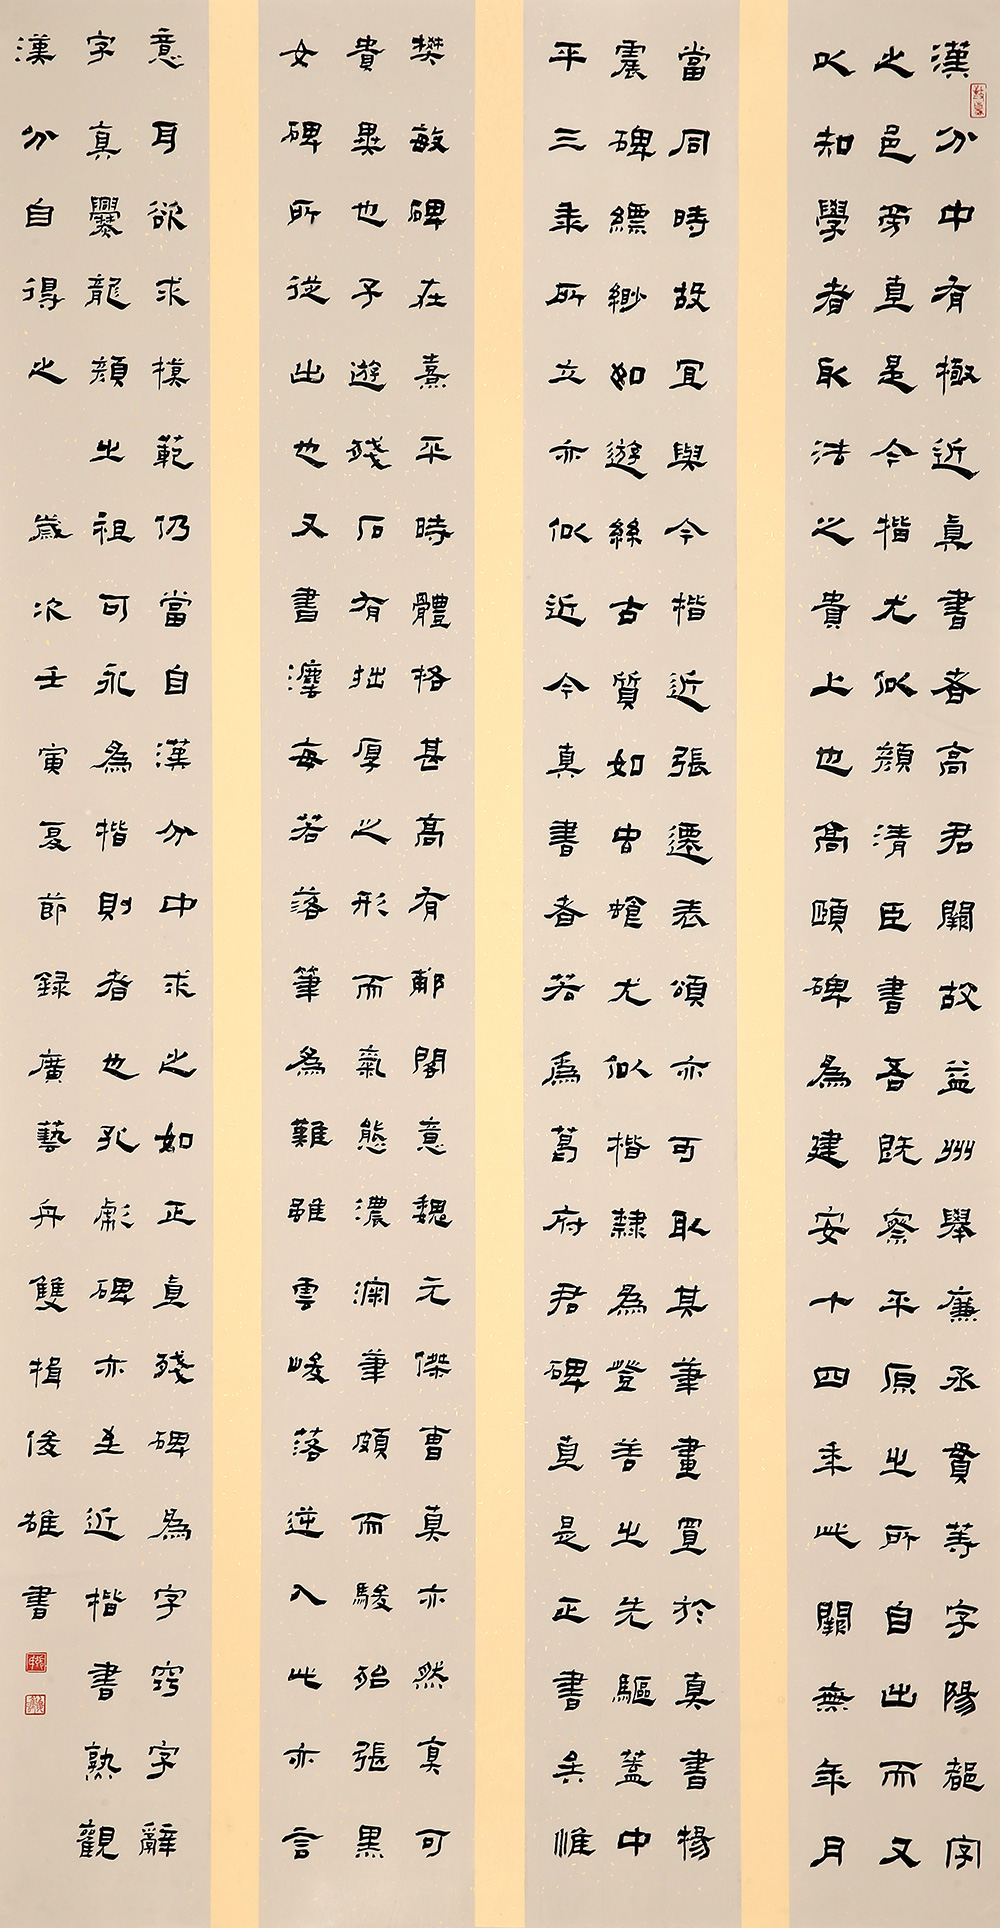 漢分中有極近真書者高君闕故益州舉廉丞貫等字陽都字
之邑旁直是今楷尤似顏清臣書吾既察平原之所自出而又
以知學者取法之貴上也高頤碑為建安十四年此闕無年月
當同時故宜與今楷近張遷表頌亦可取其筆畫置於真書楊
震碑縹緲如遊絲古質如蟲蝕尤似楷隸為登善之先驅蓋中
平三年所立亦似近今真書者若為葛府君碑直是正書矣惟
樊敏碑在熹平時體格甚高有郙閣意魏元傑曹真亦然真可
貴異也子遊殘石有拙厚之形而氣態濃深筆頗而駿殆張黑
女碑所從出也又書灋每若落筆為難雖雲峻落逆入此亦言
意耳欲求模範仍當自漢分中求之如正直殘碑為字究字辭
字真爨龍顏之祖可永為楷則者也孔彪碑亦至近楷書熟觀
漢分自得之 歲次壬寅夏節録廣藝舟雙楫後雄書